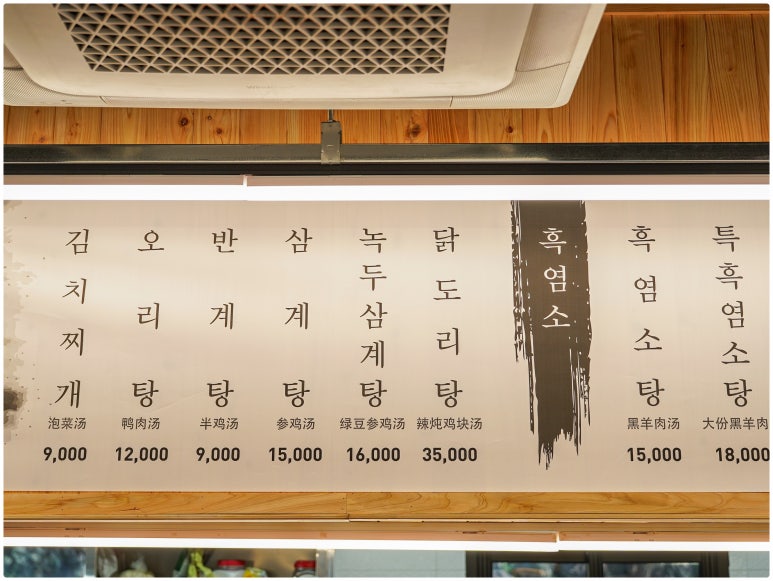 김치찌개
泡菜汤
9,000
오리탕
鸭肉汤
12,000
반계탕
半鸡汤
9,000
삼계탕
参鸡汤
15,000
녹두삼계탕
绿豆参鸡汤
16,000
닭도리탕
辣炖鸡块汤
35,000
흑염소
흑염소탕
黑羊肉汤
15,000
특흑염소탕
大份黑羊肉
18,000